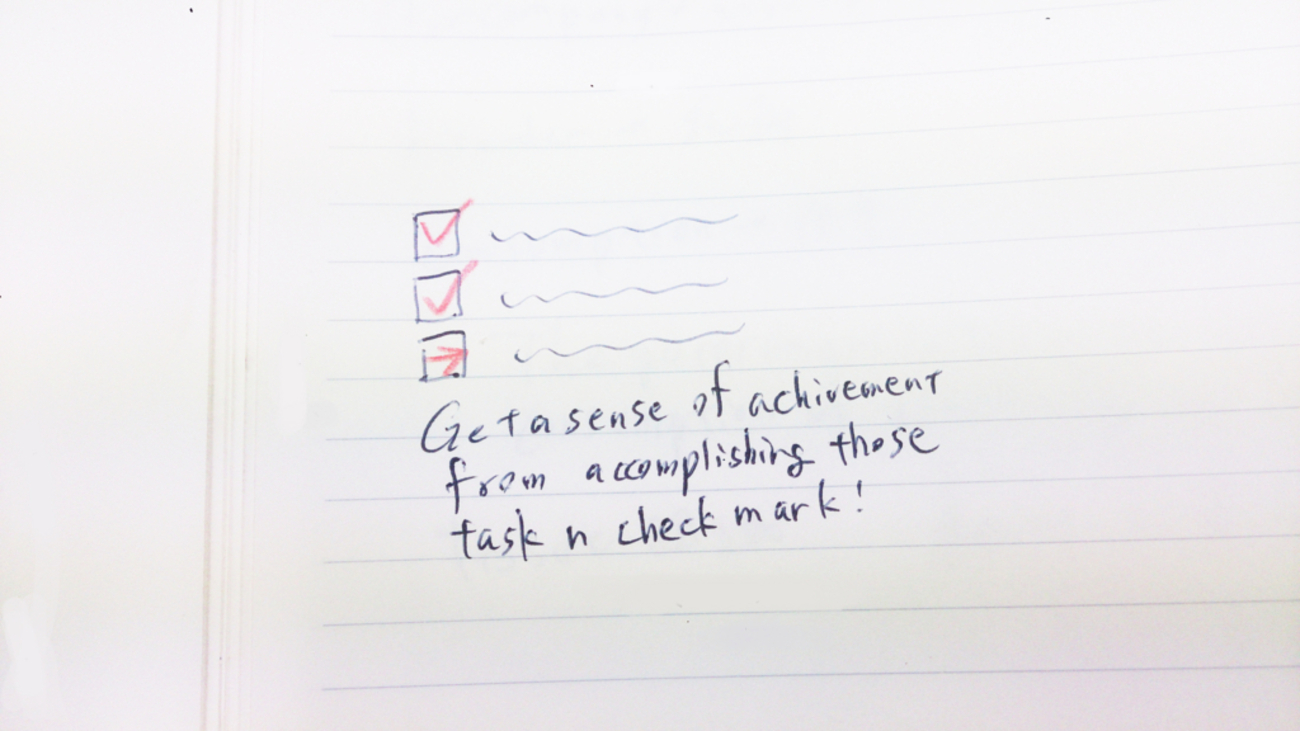 Get a sense of achivement
from accomplishing those
task n check mark!